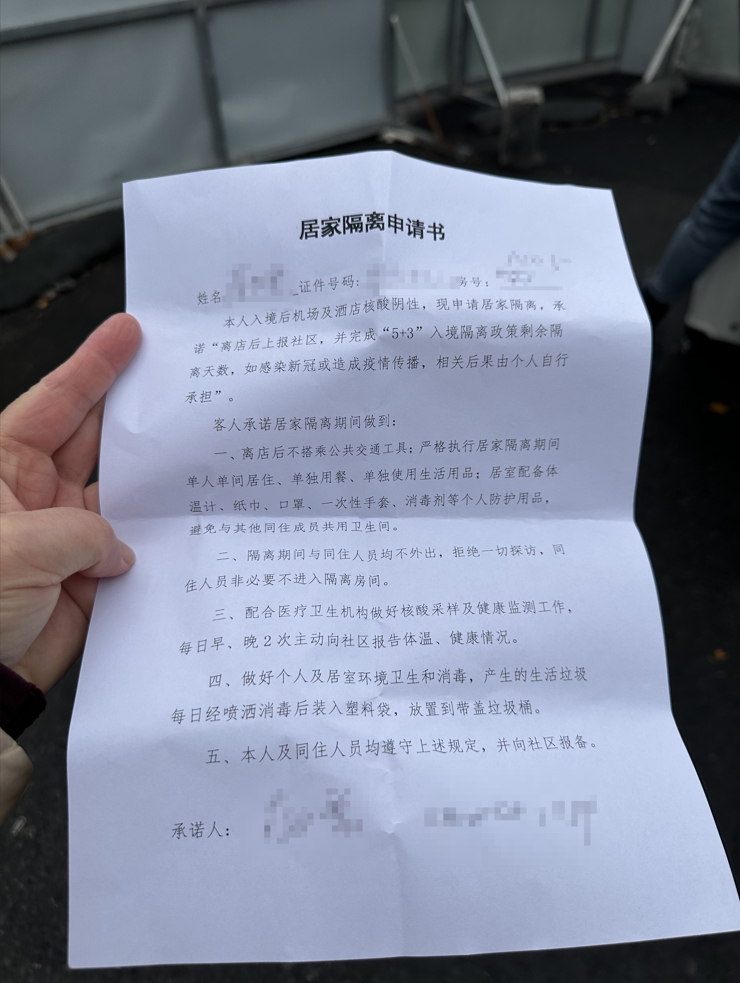 居家隔离申请书
姓名 证件号码: 房号:
本人入境后机场及酒店核酸阴性，现申请居家隔离，承
诺“离店后上报社区，并完成“5+3”入境隔离政策剩余隔
离天数，如感染新冠或造成疫情传播，相关后果由个人自行
承担”。
客人承诺居家隔离期间做到:
一、离店后不搭乘公共交通工具；严格执行居家隔离期间
单人单间居住、单独用餐、单独使用生活用品；居室配备体
温计、纸巾、口罩、一次性手套、消毒剂等个人防护用品，
避免与其他同住成员共用卫生间。
二、隔离期间与同住人员均不外出，拒绝一切探访，同
住人员非必要不进入隔离房间。
三、配合医疗卫生机构做好核酸采样及健康监测工作，
每日早、晚2次主动向社区报告体温、健康情况。
四、做好个人及居室环境卫生和消毒，产生的生活垃圾
每日经喷洒消毒后装入塑料袋，放置到带盖垃圾桶。
五、本人及同住人员均遵守上述规定，并向社区报备。
承诺人: